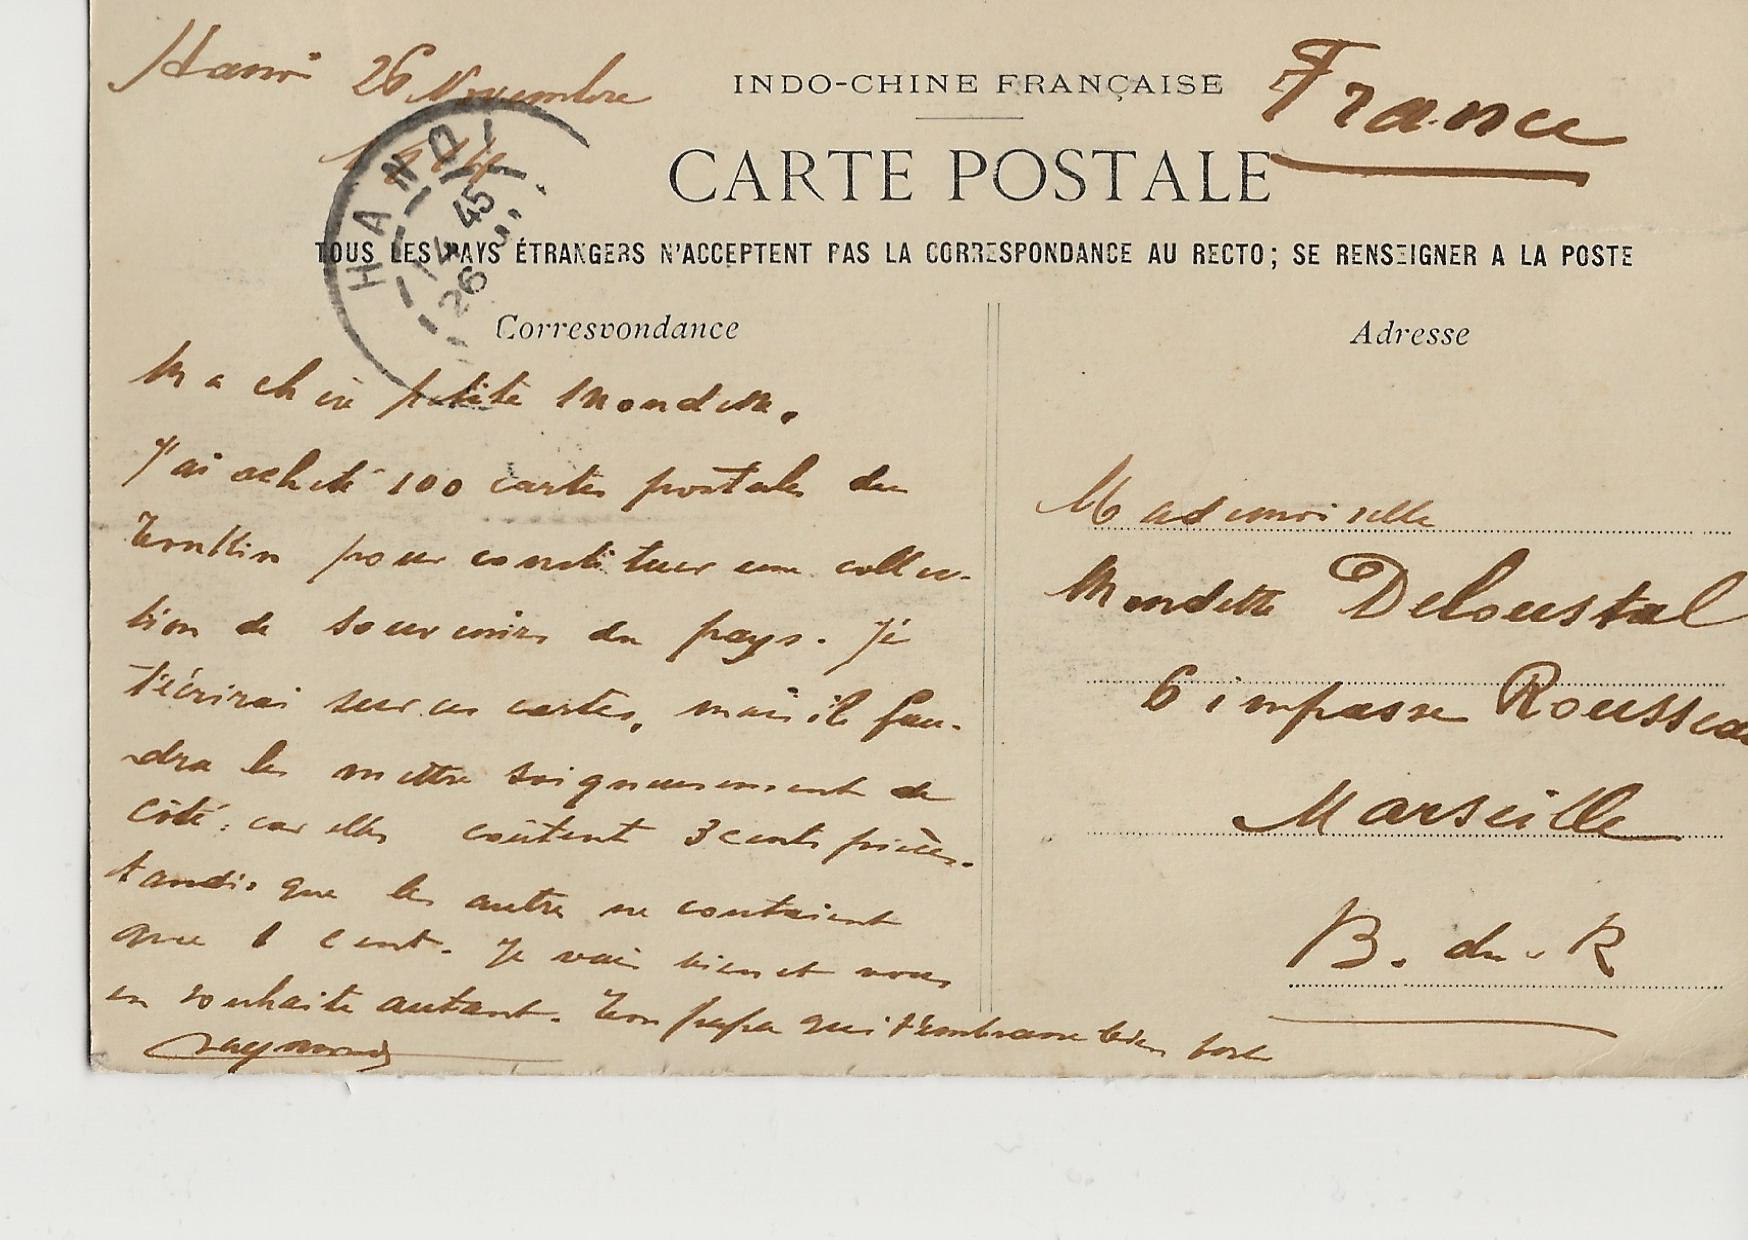 Hanoi 26 Novembre
INDO-CHINE FRANÇAISE
France
CARTE POSTALE
HANOI
14 45
26
TOUS LES PAYS ÉTRANGERS N'ACCEPTENT PAS LA CORRESPONDANCE AU RECTO; SE RENSEIGNER A LA POSTE
Correspondance
Ma chère petite Mondette,
J'ai acheté 100 cartes postales du
Tonkin pour constituer une collec-
tion de souvenirs du pays. Je
t'écrirai sur ces cartes, mais il fau-
dra les mettre soigneusement de
côté, car elles coûtent 3 cents pièces.
tandis que les autres ne coutaient
que 1 cent. Je vais bien et vous
en souhaite autant. Ton papa qui t'embrasse bien fort
Raymond
Adresse
Mademoiselle
Mondette Deloustal
6 impasse Rousseau
Marseille
B. du R